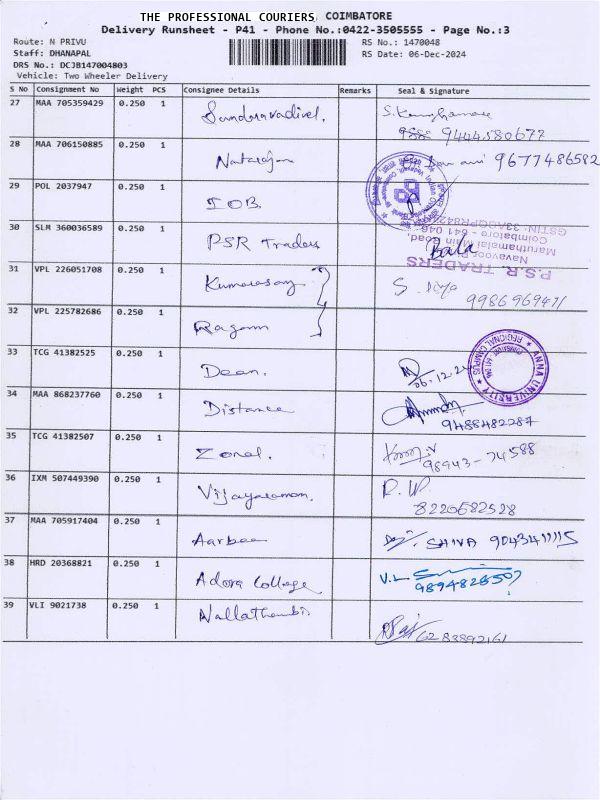 THE PROFESSIONAL COURIERS, COIMBATORE
Delivery Runsheet - P41 - Phone No.:0422-3505555 - Page No.:3
Route: N PRIVU
RS No.: 1470048
Staff: DHANAPAL
RS Date: 06-Dec-2024
DRS No.: DCJB147004803
Vehicle: Two Wheeler Delivery
S No Consignment No Weight PCS Consignee Details Remarks Seal & Signature
27 MAA 705359429 0.250 1 Sundaravadivel. 9444580677
28 MAA 706150885 0.250 1 Natarajan 9677486582
29 POL 2037947 0.250 1 IOB.
30 SLM 360036589 0.250 1 PSR Traders Bala
P.S.R. TRADERS
Navavoor Pirivu,
Maruthamalai Main Road,
Coimbatore - 641 046
31 VPL 226051708 0.250 1 Kumarasamy 9986969411
32 VPL 225782686 0.250 1
33 TCG 41382525 0.250 1 Dean. 06.12.24
ANNA UNIVERSITY
REGIONAL CAMPUS
34 MAA 868237760 0.250 1 Distance 9488482287
35 TCG 41382507 0.250 1 Zonal. 98943-74588
36 IXM 507449390 0.250 1 Vijayaraman. 8220682528
37 MAA 705917404 0.250 1 Aarbee SHIVA 9043411115
38 HRD 20368821 0.250 1 Adora College V.L
39 VLI 9021738 0.250 1 Nallathambi